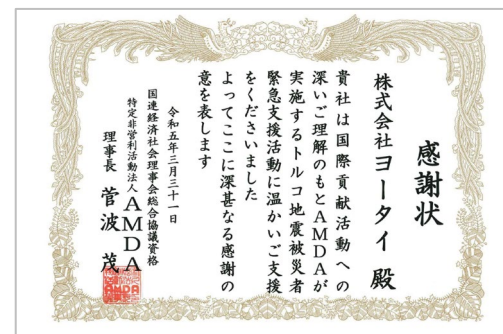 感謝状
株式会社ヨータイ 殿
貴社は国際貢献活動への
深いご理解のもとAMDAが
実施するトルコ地震被災者
緊急支援活動に温かいご支援
をくださいました
よってここに深甚なる感謝の
意を表します
令和五年三月三十一日
国連経済社会理事会総合協議資格
特定非営利活動法人AMDA
理事長 菅波 茂
AMDA